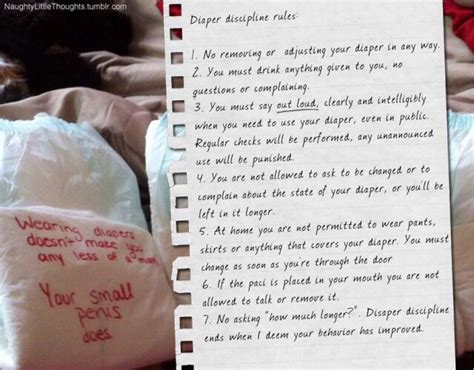 NaughtyLittleThoughts.tumblr.com
Diaper discipline rules:
1. No removing or adjusting your diaper in any way.
2. You must drink anything given to you, no
questions or complaining.
3. You must say out loud, clearly and intelligibly
when you need to use your diaper, even in public.
Regular checks will be performed, any unannounced
use will be punished.
4. You are not allowed to ask to be changed or to
complain about the state of your diaper, or you'll be
left in it longer.
5. At home you are not permitted to wear pants,
skirts or anything that covers your diaper. You must
change as soon as you're through the door
6. If the paci is placed in your mouth you are not
allowed to talk or remove it.
7. No asking "how much longer?". Disaper discipline
ends when I deem your behavior has improved.
Wearing diapers
doesn't make you
any less of a man.
Your small
penis
does.